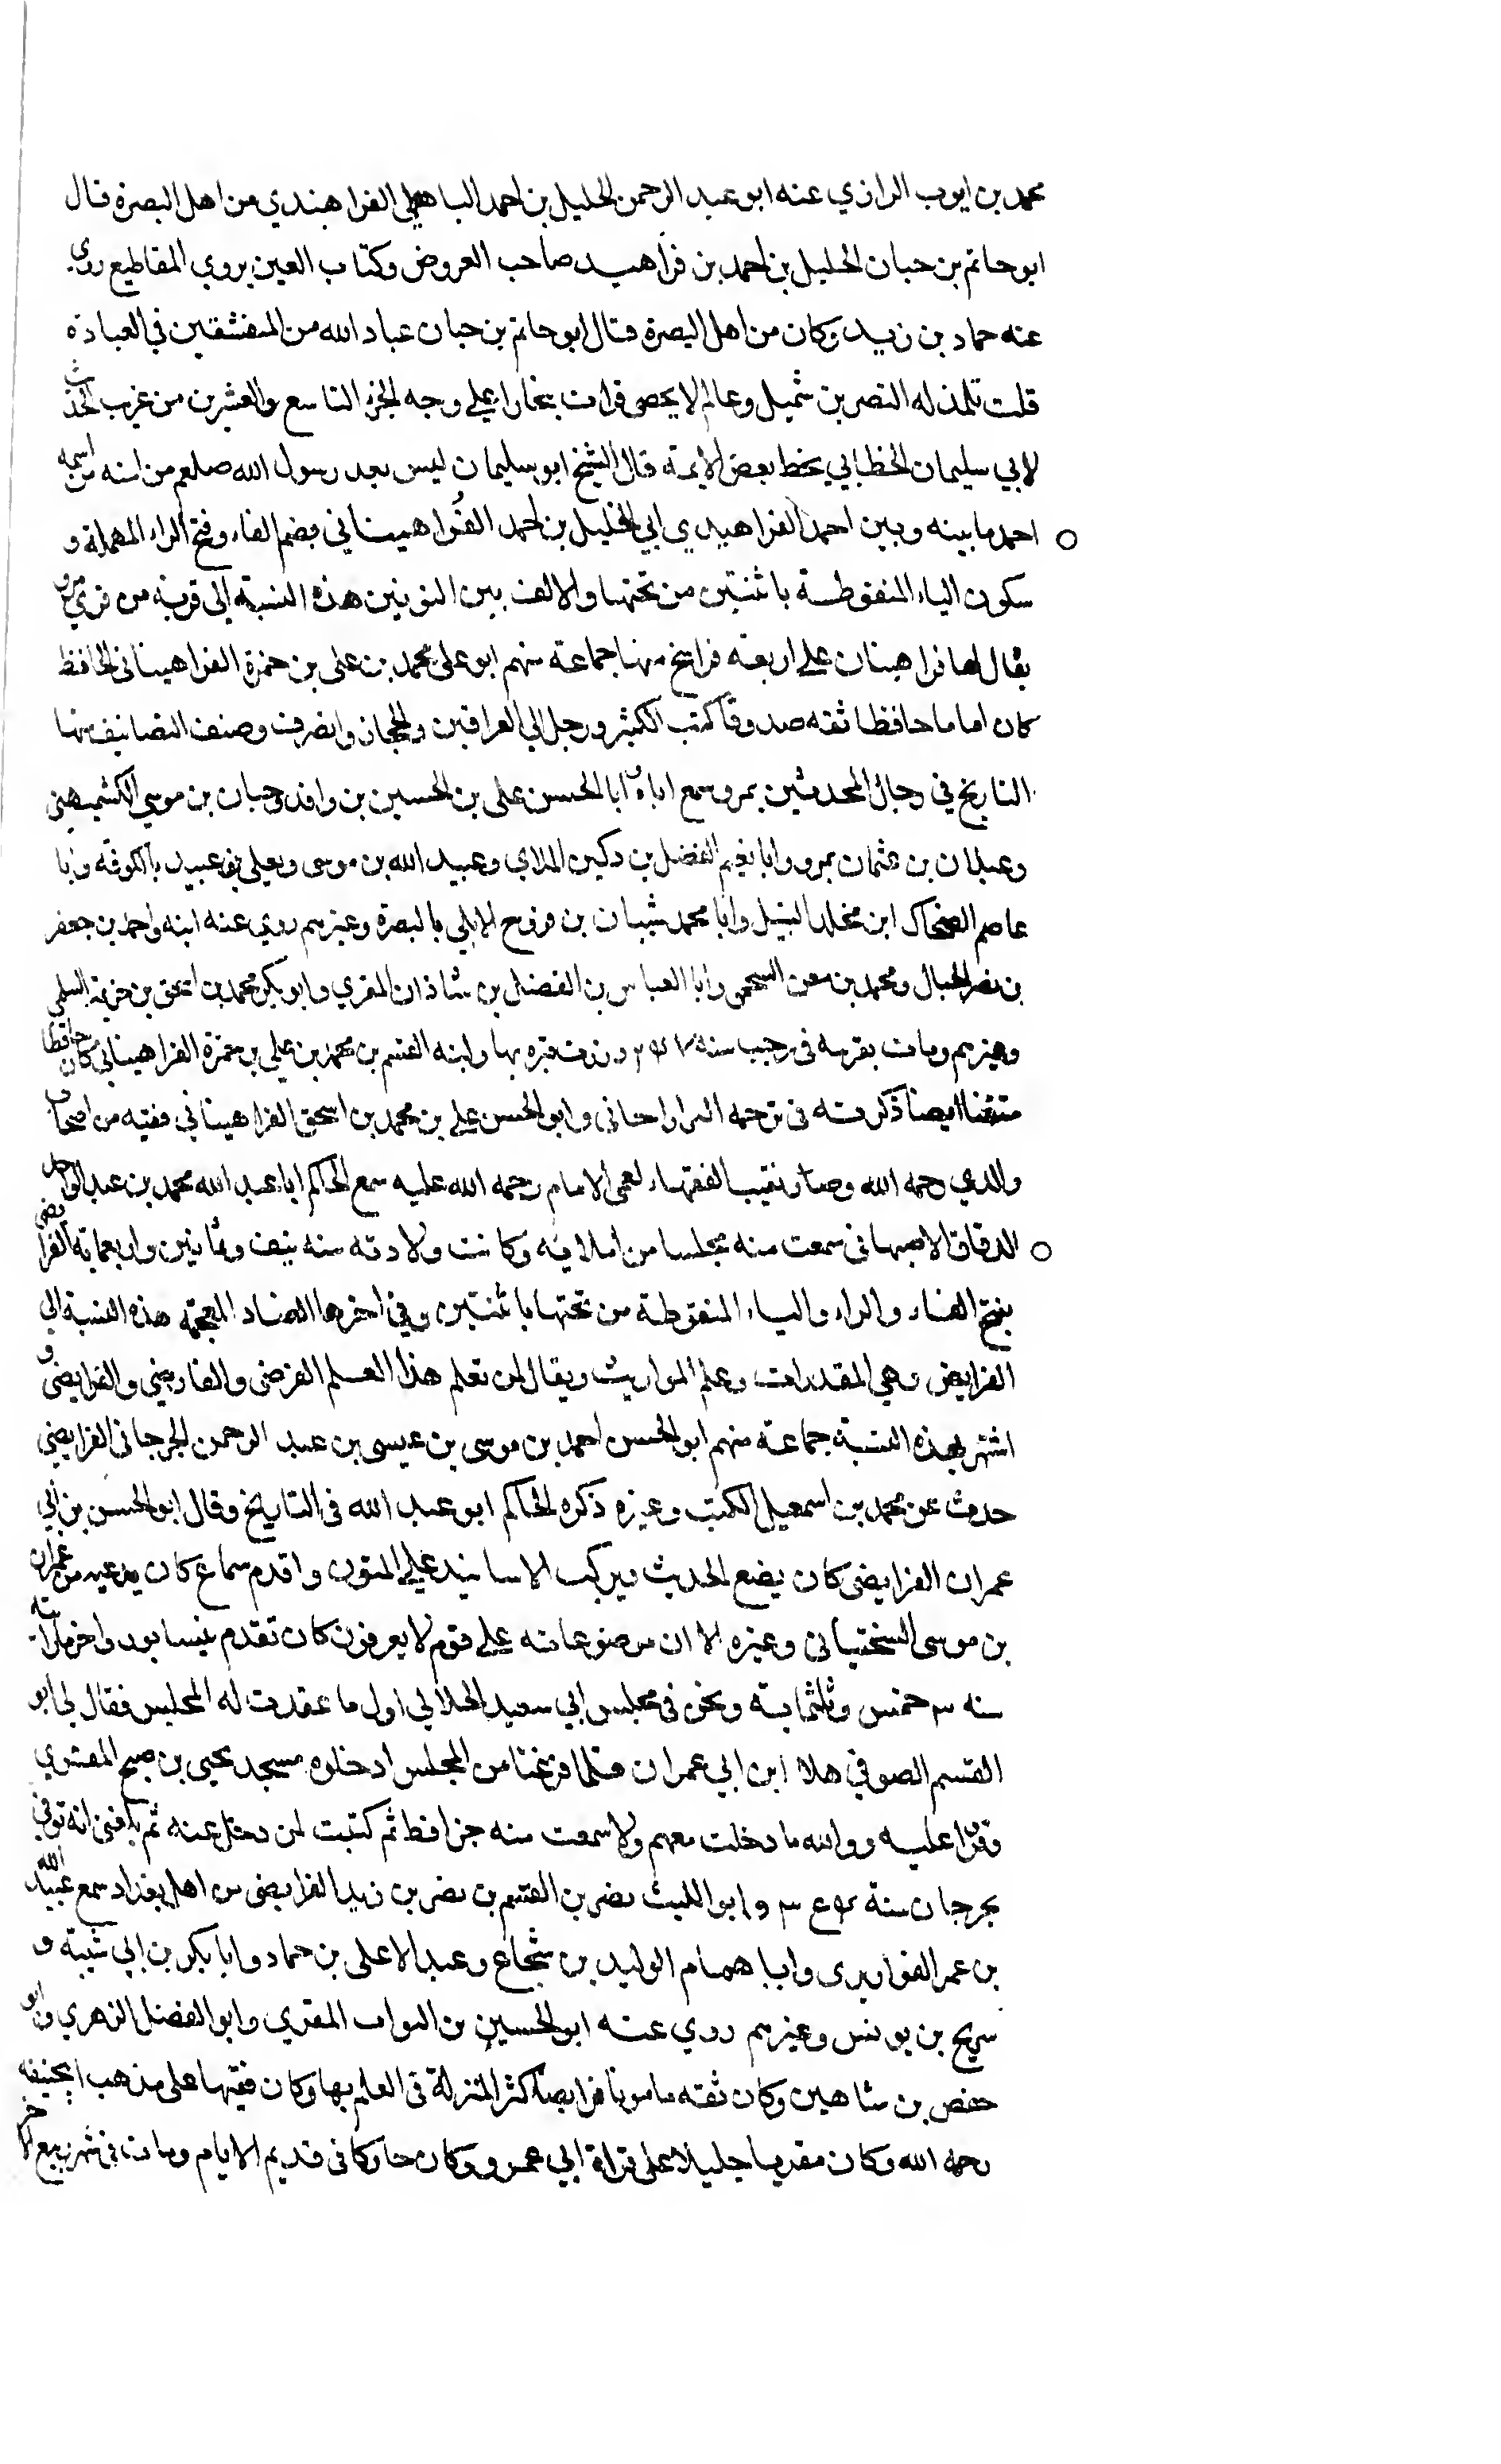 محمد بن ايوب الرازي عنه ابو عبد الرحمن الخليل بن احمد الباهلي الفراهندي من اهل البصرة قال
ابو حاتم بن حبان الخليل بن احمد بن فراهيد صاحب العروض وكتاب العين يروي المقاطيع روي
عنه حماد بن زيد وكان من اهل البصرة قال ابو حاتم بن حبان عباد الله من المتقشفين في العبادة
قلت تلمذ له النضر بن شميل وعالم لا يحصى قرات ببخارا على وجه الجزء التاسع والعشرين من غريب الحديث
لابي سليمان الخطابي بخط بعض الايمة قال الشيخ ابو سليمان ليس بعد رسول الله صلعم من ابنه من اسمه
احمد ما بينه وبين احمد الفراهيدي ابي الخليل بن احمد الفراهيناني بضم الفاء وفتح الراء المهملة و
سكون الياء المنقوطة باثنتين من تحتها والالف بين النونين هذه النسبة الى قرية من قري مرو
يقال لها فراهينان على اربعة فراسخ منها جماعة منهم ابو علي محمد بن علي بن حمزة الفراهيناني الحافظ
كان اماما حافظا ثقه صدوقا كتب الكثير ورحل الي العراقين والحجاز وانصرف وصنف التصانيف منها
التاريخ في رجال المحدثين بمرو سمع اباه و ابا الحسن علي بن الحسين بن واقد وحبان بن موسي الكشميهني
وعبدان بن عثمان بمرو وابا نعيم الفضل بن دكين الملاي وعبيد الله بن موسى ويعلي بن عبيد بالكوفه وابا
عاصم الضحاك ابن مخلد النبيل وابا محمد شيبان بن فروخ الابلي بالبصرة وغيرهم روي عنه ابنه واحمد بن جعفر
بن نصر الجمال ومحمد بن معن السحمى وابا العباس بن الفضل بن شاذان المقري وابو بكر محمد بن اسحق بن خزيمة السلمي
وغيرهم ومات بقريته في رجب سنه ٢٤٧ وزرت قبره بها وابنه القسم بن محمد بن علي بن حمزة الفراهيناني كان حافظا
متقنا ايضا ذكرته في ترجمه البراراحاني وابو الحسن علي بن محمد بن اسحق الفراهيناني فقيه من اصحاب
والدي رحمه الله وصار نقيب الفقهاء لعمي الامام رحمه الله عليه سمع الحاكم ابا عبد الله محمد بن عبد الواحد
الدقاق الاصبهاني سمعت منه مجلسا من املائيه وكانت ولادته سنه نيف وثمانين واربعمايه الفرايضي
بفتح الفاء والراء والياء المنقوطة من تحتها باثنتين وفي اخرها الضاد المعجمه هذه النسبة الي
الفرايض وهي المقدرات وعلم المواريث ويقال لمن تعلم هذا العلم الفرضى والفارضي والفرايضي و
اشتهر بهذه النسبة جماعة منهم ابو الحسن احمد بن موسى بن عيسى بن عبد الرحمن الجرجاني الفرايضي
حدث عن محمد بن اسمعيل المكتب وغيره ذكره الحاكم ابو عبد الله في التاريخ وقال ابو الحسن بن ابي
عمران الفرايضى كان يضع الحديث ويركب الاسانيد على المتون واقدم سماع كان يدعيه من عمران
بن موسى السختياني وغيره الا ان موضوعاته على قوم لا يعرفون كان تقدم نيسابور واخر ما رايته
سنه ٣ خمس وثلثماية ونحن في مجلس ابي سعيد الخلالي اول ما عقدت له المجلس فقال لي ابو
القسم الصوفي هذا ابن ابي عمران فلما فرغنا من المجلس ادخلوه مسجد يحيي بن صبيح المقري
وقرا عليه ووالله ما دخلت معهم ولا سمعت منه جزءا قط ثم كتبت لمن دخل عنه ثم بلغني انه توفي
بجرجان سنة وابو الليث نصر بن القسم بن نصر بن زيد الفرايضى من اهل بغداد سمع عبيد الله
بن عمر القواريرى وابا همام الوليد بن شجاع وعبد الاعلى بن حماد وابا بكر بن ابي شيبة و
سريج بن يونس وغيرهم روي عنه ابو الحسين بن البواب المقري وابو الفضل الزهري وابو
حفص بن شاهين وكان ثقه مامونا فرايضا كثر المنزلة في العلم بها وكان فقيها على مذهب ابي حنيفه
رحمه الله وكان مقريا جليلا على قراة ابي عمرو وكان في قديم الايام ومات في شهر ربيع الاخر